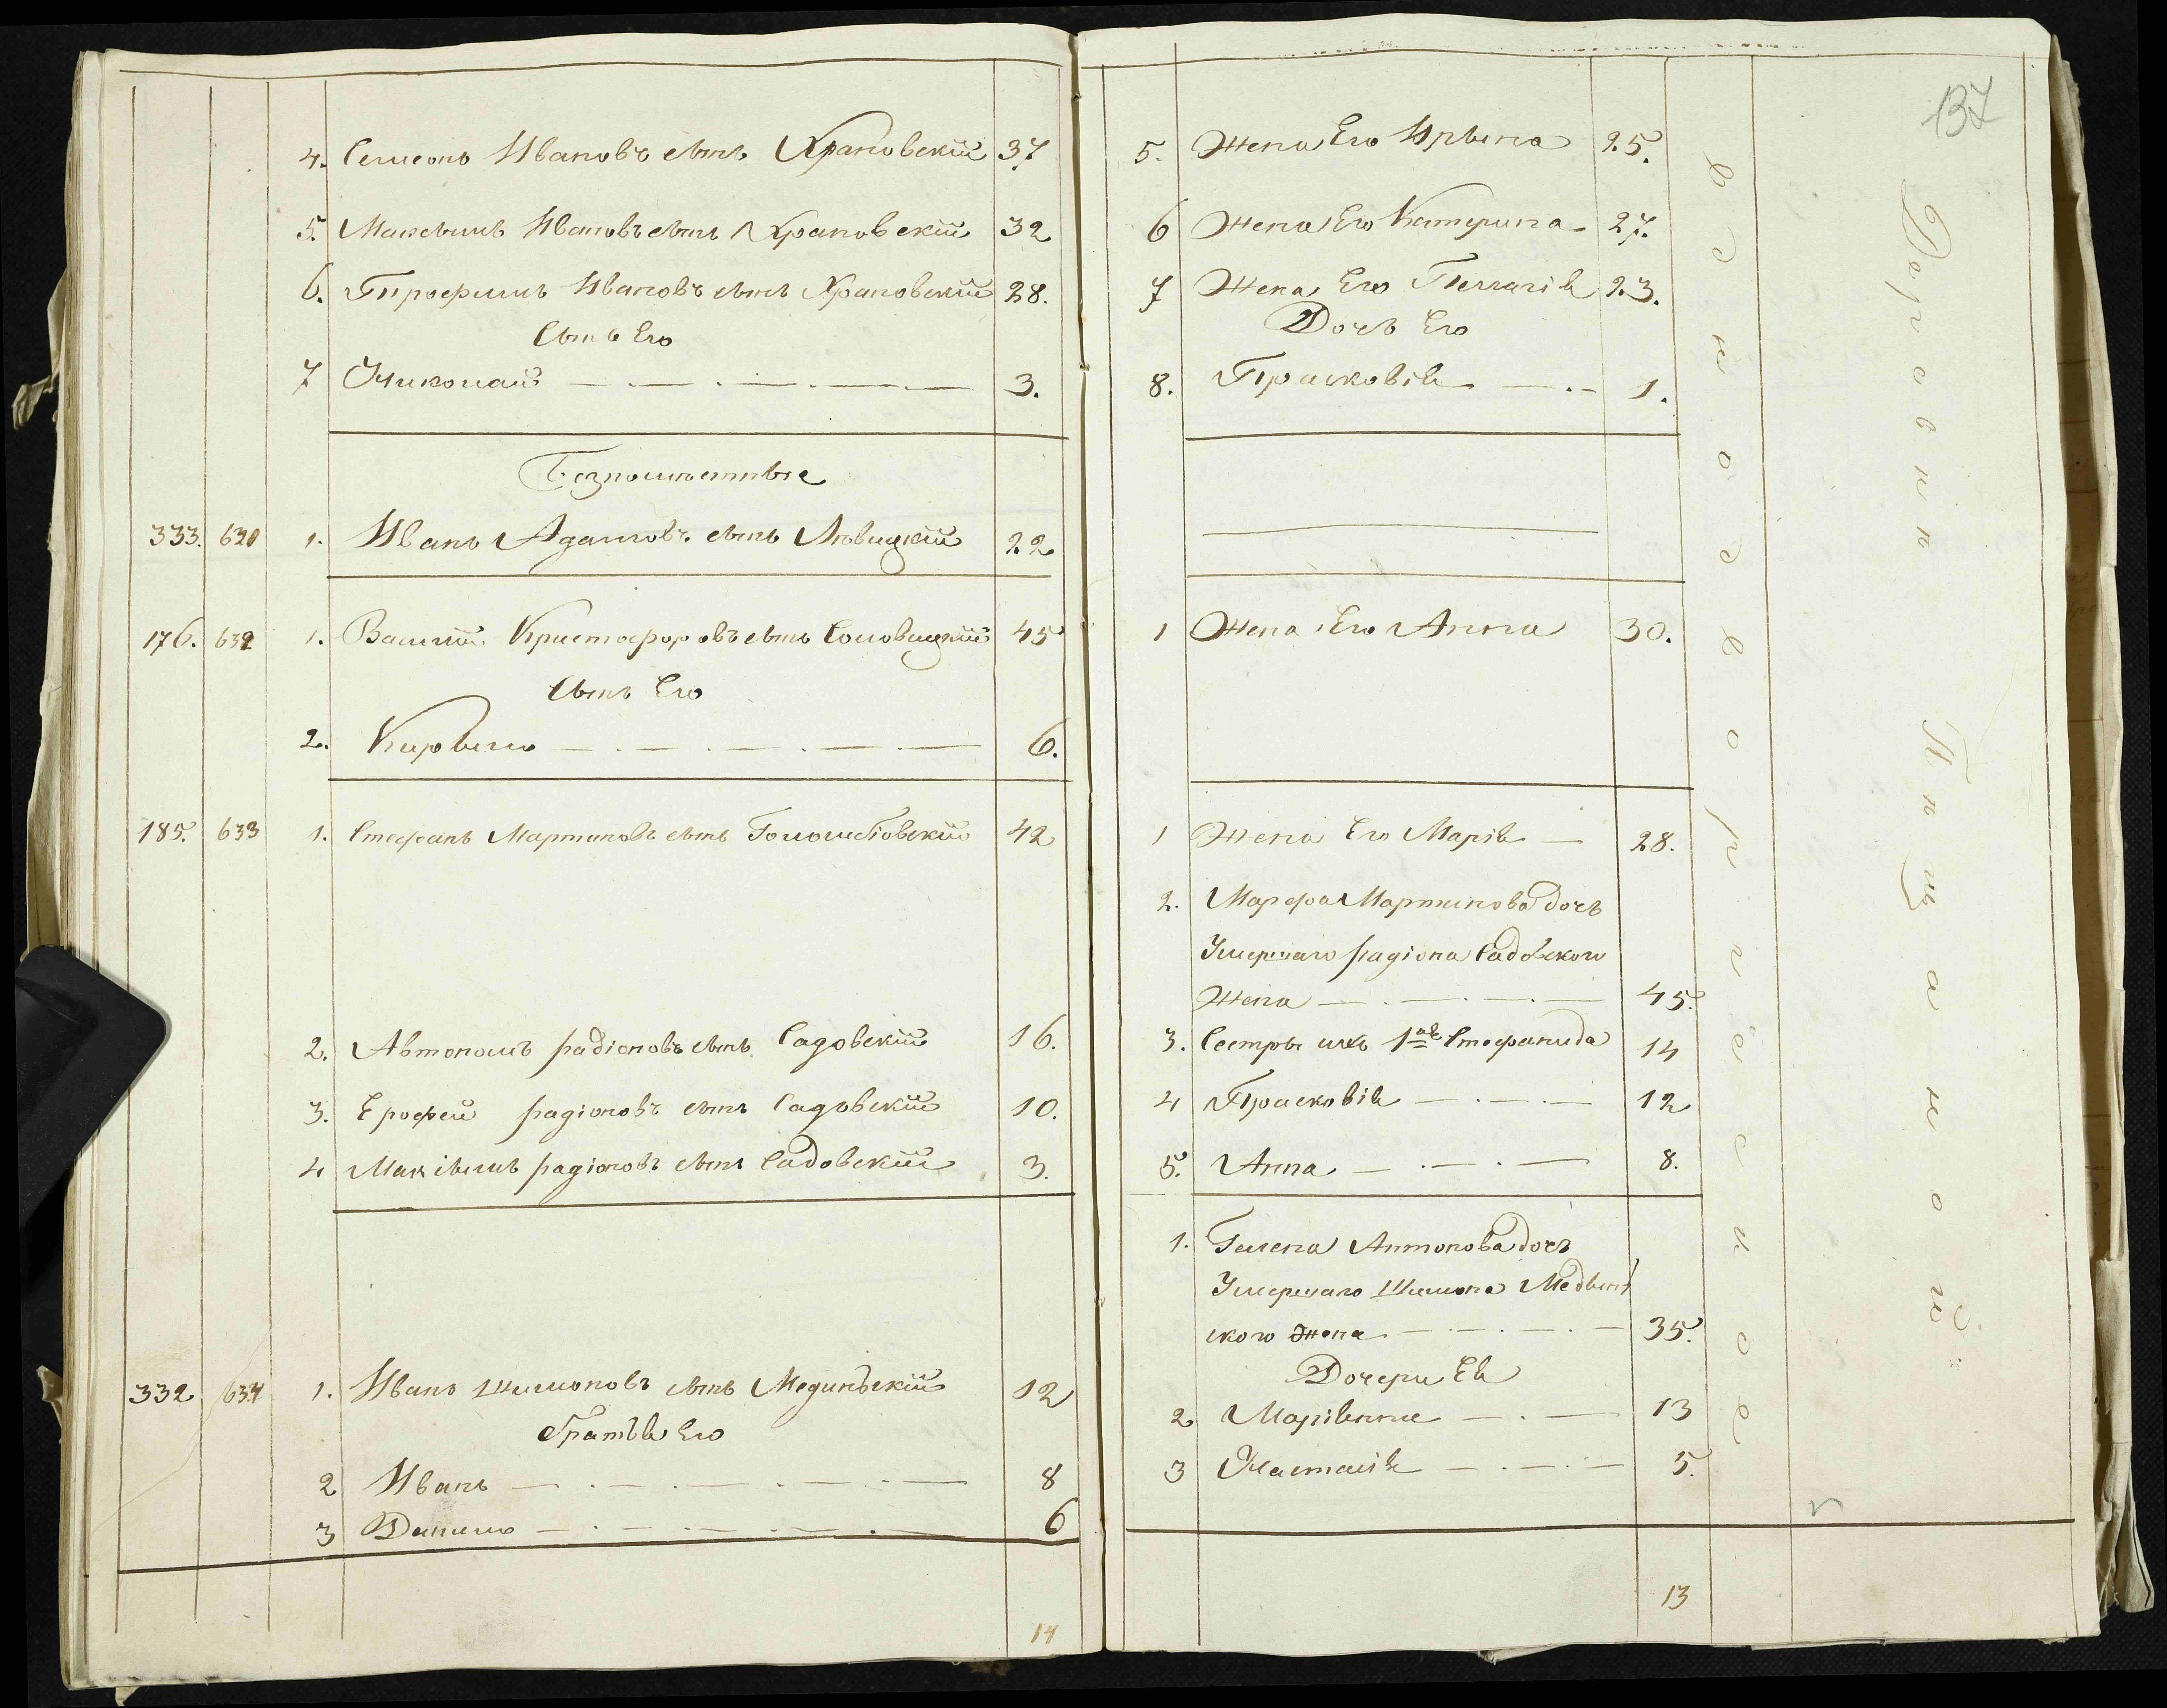 137
4. Семеонъ Ивановъ сынъ Храновскій 37
5. Максымъ Ивановъ сынъ Храновскій 32
6. Трофимъ Ивановъ сынъ Храновскій 28.
Сынъ Его
7 Николай 3.
Безпоместные
333. 1. Иванъ Адамовъ сынъ Левицкій 22
176. 632 1. Василій Кристофоровъ сынъ Соловицкій 45
Сынъ Его
2. Кирыло 6.
185. 633 1. Стефанъ Мартиновъ сынъ 42
2. Автономъ радіоновъ сынъ Садовскій 16.
3. Ерофей радіоновъ сынъ Садовскій 10.
4 Максіымъ радіоновъ сынъ Садовскій 3.
332 634 1. Иванъ Шимоновъ сынъ Мединьскій 12
Братья Его
2 Иванъ 8
3 Данило 6
14
5. Жена Его Ирына 25.
6 Жена Его Катерина 27.
7 Жена Его Пеллагія 23.
Дочь Его
8. Прасковія 1.
1 Жена Его Анна 30.
1 Жена Его Марія 28.
2. Марфа Мартинова дочь
Умершаго радіона Садовского
Жена 45.
3. Сестры ихъ 1ая Стефанида 14
4 Прасковія 12
5. Анна 8.
1. Гелена Антонова дочь
Умершаго Шимона Медынь
ского жена 35.
Дочери Ея
2 Маріянна 13
3 Настасія 5.
13
Однодворческое
Деревни Пищаной